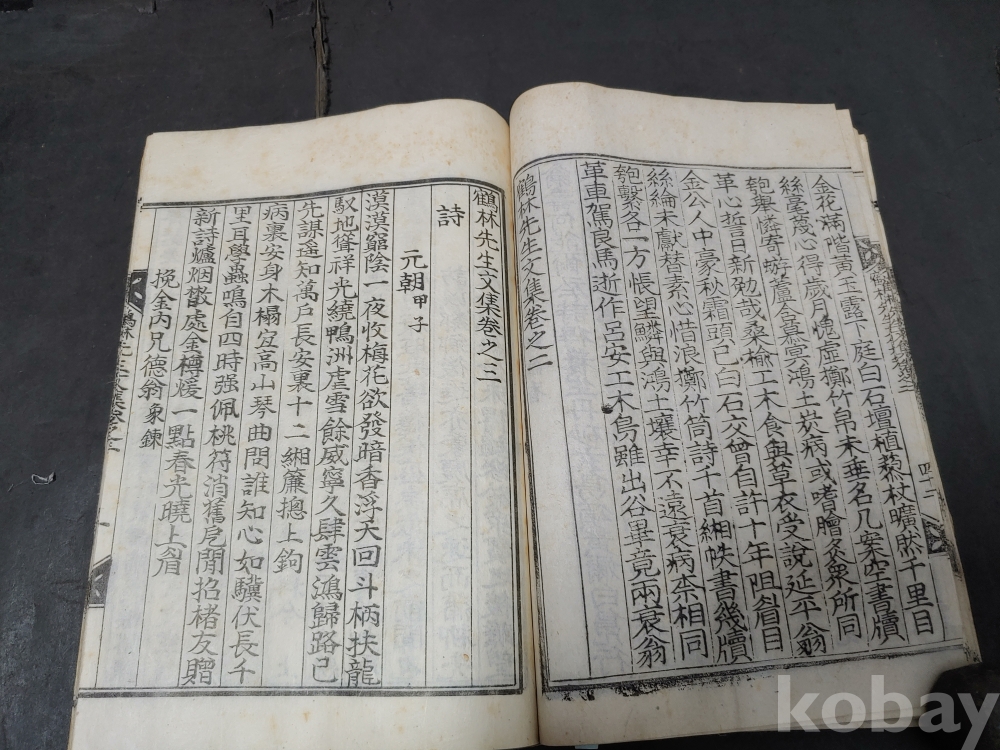 金花滿階黃玉露下庭白石壇植藜杖曠然千里目
絲臺蔑心得歲月愧虛擲竹帛未垂名几案空書牘
匏與憐寄蜉蘆合慕冥鴻土炭病或嗜膾炙衆所同
革心誓日新勉哉桑榆工木食與草衣受說延平翁
金公人中豪秋霜頭已白石父曾自許十年阻眉目
絲綸未獻替素心惜浪擲竹筒詩千首緗帙書幾牘
匏繫各一方悵望鱗與鴻土壤幸不遠衰病柰相同
革車駕良馬逝作呂安工木鳥雖出谷畢竟兩衰翁
鶴林先生文集卷之二
四十二
鶴林先生文集卷之三
詩
元朝 甲子
漠漠窮陰一夜收梅花欲發暗香浮天回斗柄扶龍
馭地聳祥光繞鴨洲虐雪餘威寧久肆雲鴻歸路已
先謀遥知萬戶長安裏十二緗簾摠上鉤
病裏安身木榻宜高山琴曲問誰知心如驥伏長千
里耳學蟲鳴自四時强佩桃符消舊戹閒招楮友贈
新詩爐烟散處金樽煖一點春光曉上眉
挽金內兄德翁象鍊
kobay